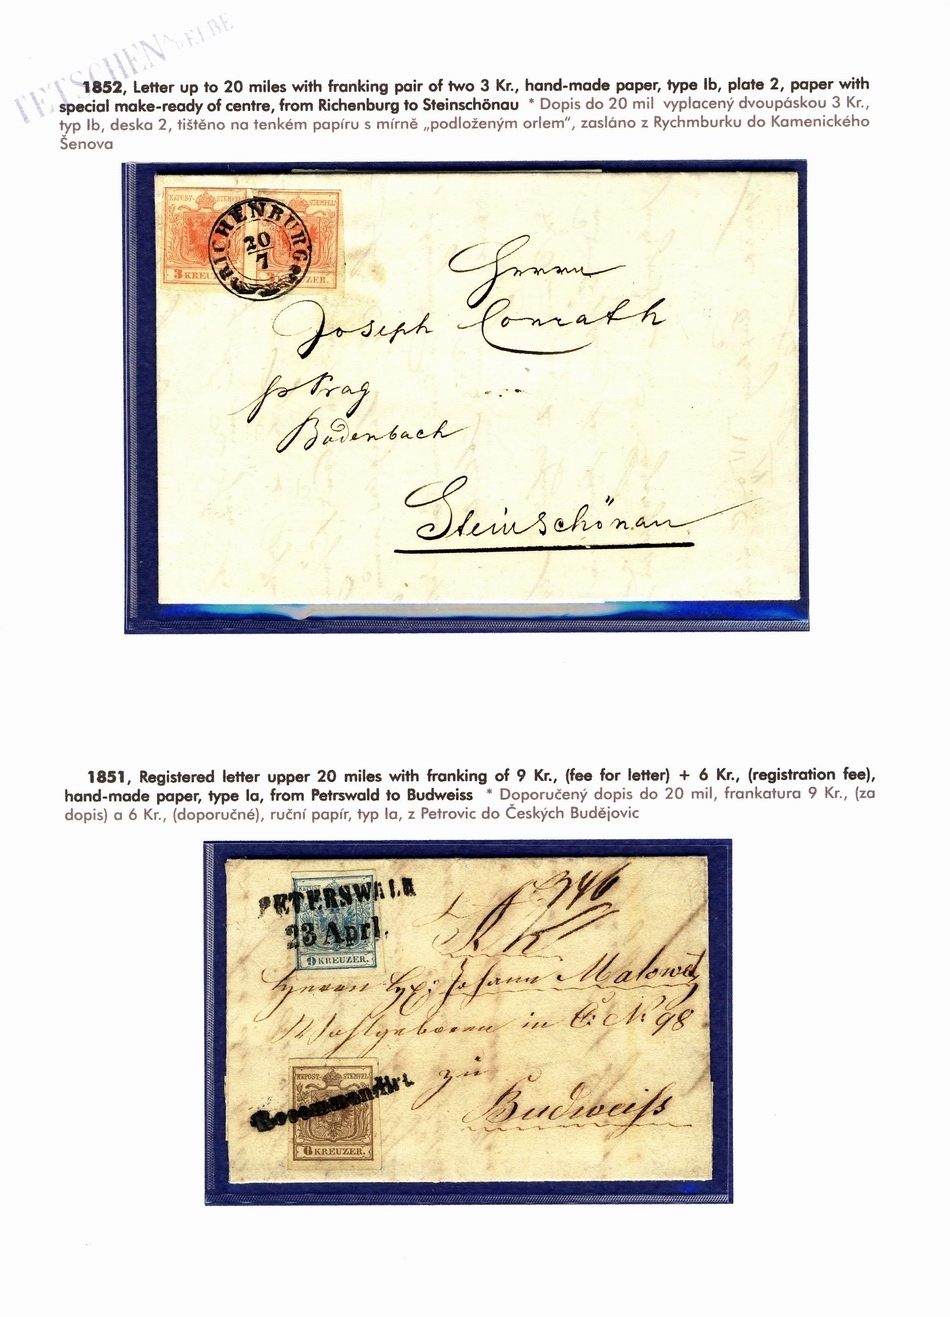 TETSCHEN
ELBE
1852, Letter up to 20 miles with franking pair of two 3 Kr., hand-made paper, type Ib, plate 2, paper with
special make-ready of centre, from Richenburg to Steinschönau * Dopis do 20 mil vyplacený dvoupáskou 3 Kr.,
typ Ib, deska 2, tištěno na tenkém papíru s mírně „podloženým orlem“, zasláno z Rychmburku do Kamenického
Šenova
KKPOST-STEMPEL
RICHENBURG
20
7
3 KREUZER.
Herrn
Joseph Conrath
pr Prag
Bodenbach
Steinschönau
1851, Registered letter upper 20 miles with franking of 9 Kr., (fee for letter) + 6 Kr., (registration fee),
hand-made paper, type Ia, from Petrswald to Budweiss * Doporučený dopis do 20 mil, frankatura 9 Kr., (za
dopis) a 6 Kr., (doporučné), ruční papír, typ Ia, z Petrovic do Českých Budějovic
PETERSWALD
23 Aprl.
9 KREUZER.
Herrn Johann
Wohlgeboren in C: N: 98
zu
Budweiss
KKPOST-STEMPEL
Recommandirt.
6 KREUZER.